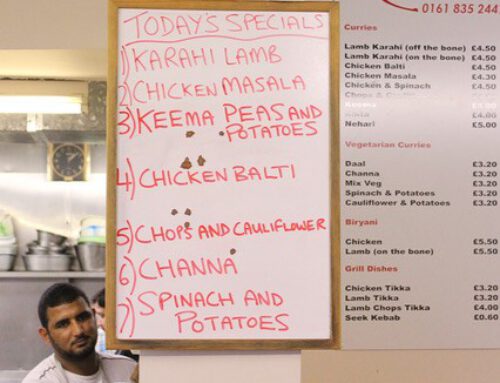 TODAY'S SPECIALS
1) KARAHI LAMB
2) CHICKEN MASALA
3) KEEMA PEAS AND
POTATOES
4) CHICKEN BALTI
5) CHOPS AND CAULIFLOWER
6) CHANNA
7) SPINACH AND
POTATOES
0161 835 244
Curries
Lamb Karahi (off the bone) £4.50
Lamb Karahi (on the bone) £4.50
Chicken Balti £4.50
Chicken Masala £4.30
Chicken & Spinach £4.50
Keema
£4.00
Nehari £5.00
Vegetarian Curries
Daal £3.20
Channa £3.20
Mix Veg £3.20
Spinach & Potatoes £3.20
Cauliflower & Potatoes £3.20
Biryani
Chicken £5.50
Lamb (on the bone) £5.50
Grill Dishes
Chicken Tikka £3.20
Lamb Tikka £3.20
Lamb Chops Tikka £4.00
Seek Kebab £0.60